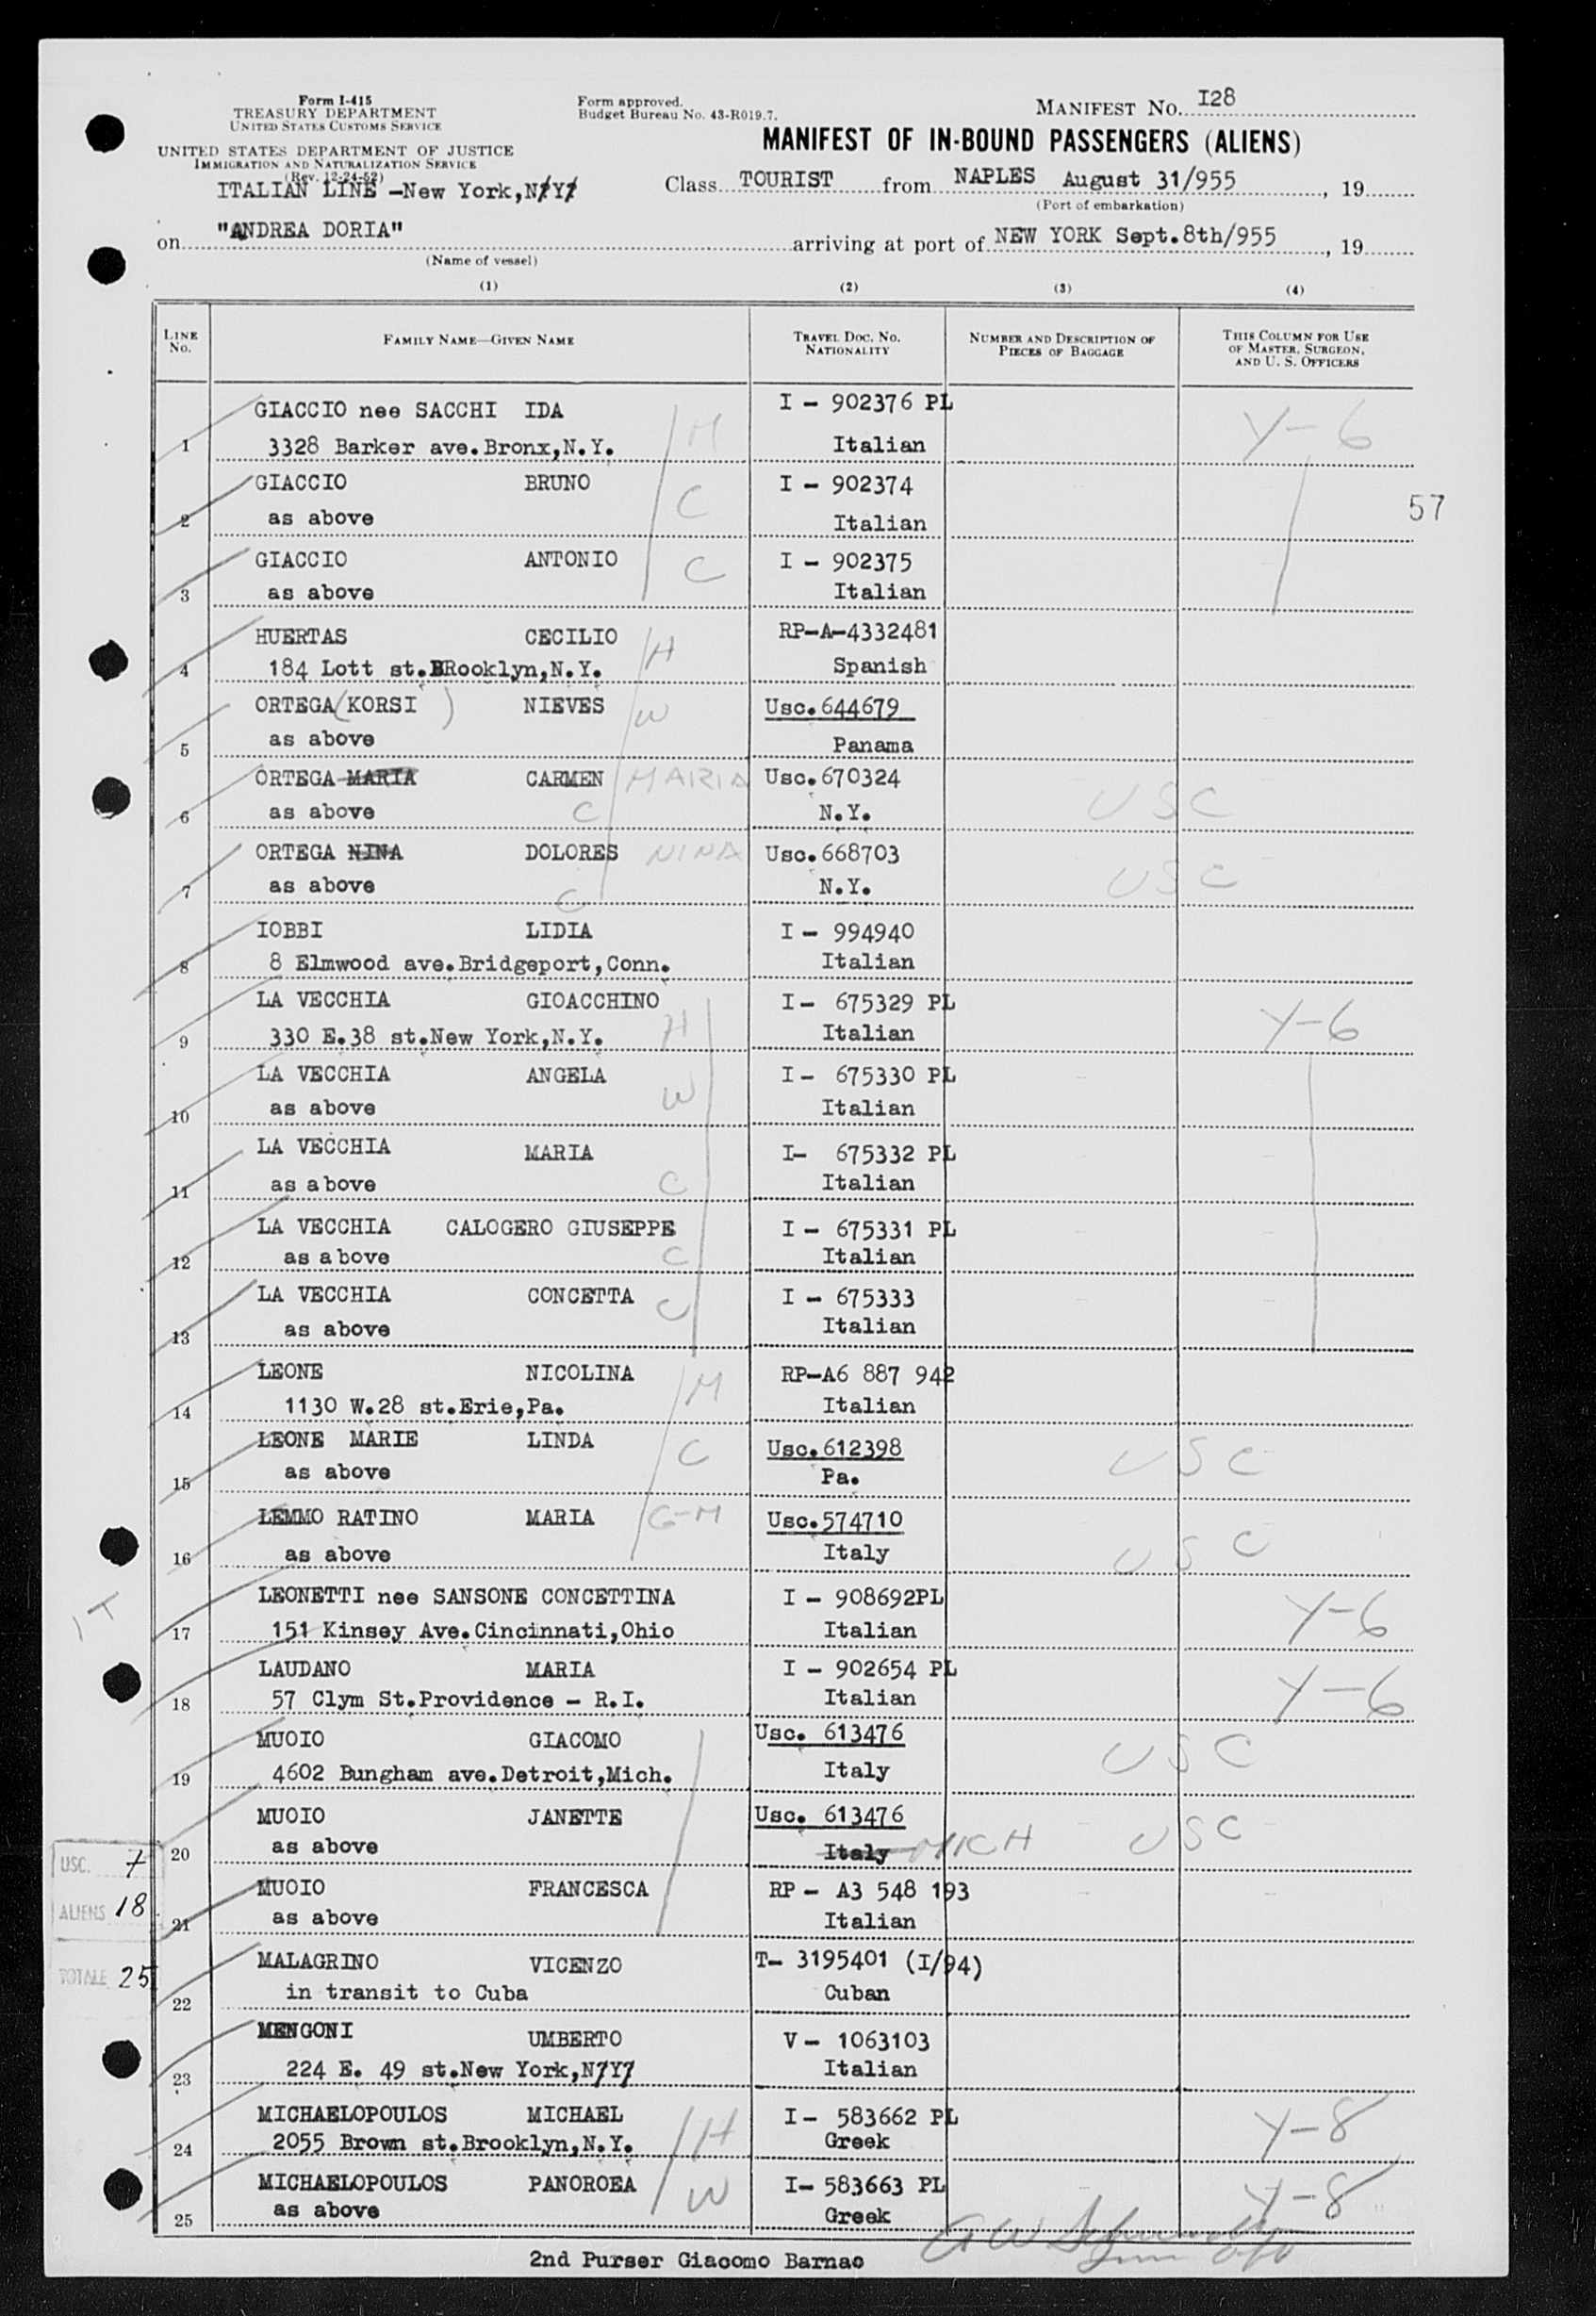 Form I-415
TREASURY DEPARTMENT
UNITED STATES CUSTOMS SERVICE
UNITED STATES DEPARTMENT OF JUSTICE
IMMIGRATION AND NATURALIZATION SERVICE
(Rev. 12-24-52)
Form approved.
Budget Bureau No. 43-R019.7.
MANIFEST No. I28
MANIFEST OF IN-BOUND PASSENGERS (ALIENS)
ITALIAN LINE -New York,N/Y/
Class TOURIST from NAPLES August 31/955, 19
(Port of embarkation)
on "ANDREA DORIA" arriving at port of NEW YORK Sept.8th/955, 19
(Name of vessel)
(1) (2) (3) (4)
LINE No. FAMILY NAME—GIVEN NAME TRAVEL DOC. NO. NATIONALITY NUMBER AND DESCRIPTION OF PIECES OF BAGGAGE THIS COLUMN FOR USE OF MASTER, SURGEON, AND U. S. OFFICERS
GIACCIO nee SACCHI IDA I - 902376 PL
1 3328 Barker ave.Bronx,N.Y. M Italian Y-6
GIACCIO BRUNO C I - 902374
57
2 as above Italian
GIACCIO ANTONIO C I - 902375
3 as above Italian
HUERTAS CECILIO H RP-A-4332481
4 184 Lott st.BRooklyn,N.Y. Spanish
ORTEGA (KORSI ) NIEVES W Usc.644679
5 as above Panama
ORTEGA MARIA CARMEN MARIA Usc.670324
6 as above C N.Y. USC
ORTEGA NINA DOLORES NINA Usc.668703
7 as above C N.Y. USC
IOBBI LIDIA I - 994940
8 8 Elmwood ave.Bridgeport,Conn. Italian
LA VECCHIA GIOACCHINO I- 675329 PL
9 330 E.38 st.New York,N.Y. H Italian Y-6
LA VECCHIA ANGELA W I- 675330 PL
10 as above Italian
LA VECCHIA MARIA I- 675332 PL
11 as above C Italian
LA VECCHIA CALOGERO GIUSEPPE I - 675331 PL
12 as above C Italian
LA VECCHIA CONCETTA C I - 675333
13 as above Italian
LEONE NICOLINA M RP-A6 887 942
14 1130 W.28 st.Erie,Pa. Italian
LEONE MARIE LINDA C Usc.612398
15 as above Pa. USC
LEMMO RATINO MARIA G-M Usc.574710
16 as above Italy USC
LEONETTI nee SANSONE CONCETTINA I - 908692PL
17 151 Kinsey Ave.Cincinnati,Ohio Italian Y-6
LAUDANO MARIA I - 902654 PL
18 57 Clym St.Providence - R.I. Italian Y-6
MUOIO GIACOMO Usc. 613476
19 4602 Bungham ave.Detroit,Mich. Italy USC
MUOIO JANETTE Usc. 613476
20 as above Italy MICH USC
MUOIO FRANCESCA RP - A3 548 193
21 as above Italian
USC. 7
ALIENS 18
TOTALE 25
MALAGRINO VICENZO T- 3195401 (I/94)
22 in transit to Cuba Cuban
MENGONI UMBERTO V - 1063103
23 224 E. 49 st.New York,N/Y/ Italian
MICHAELOPOULOS MICHAEL H I- 583662 PL
24 2055 Brown st.Brooklyn,N.Y. Greek Y-8
MICHAELOPOULOS PANOROEA W I- 583663 PL
25 as above Greek Y-8
2nd Purser Giacomo Barnao